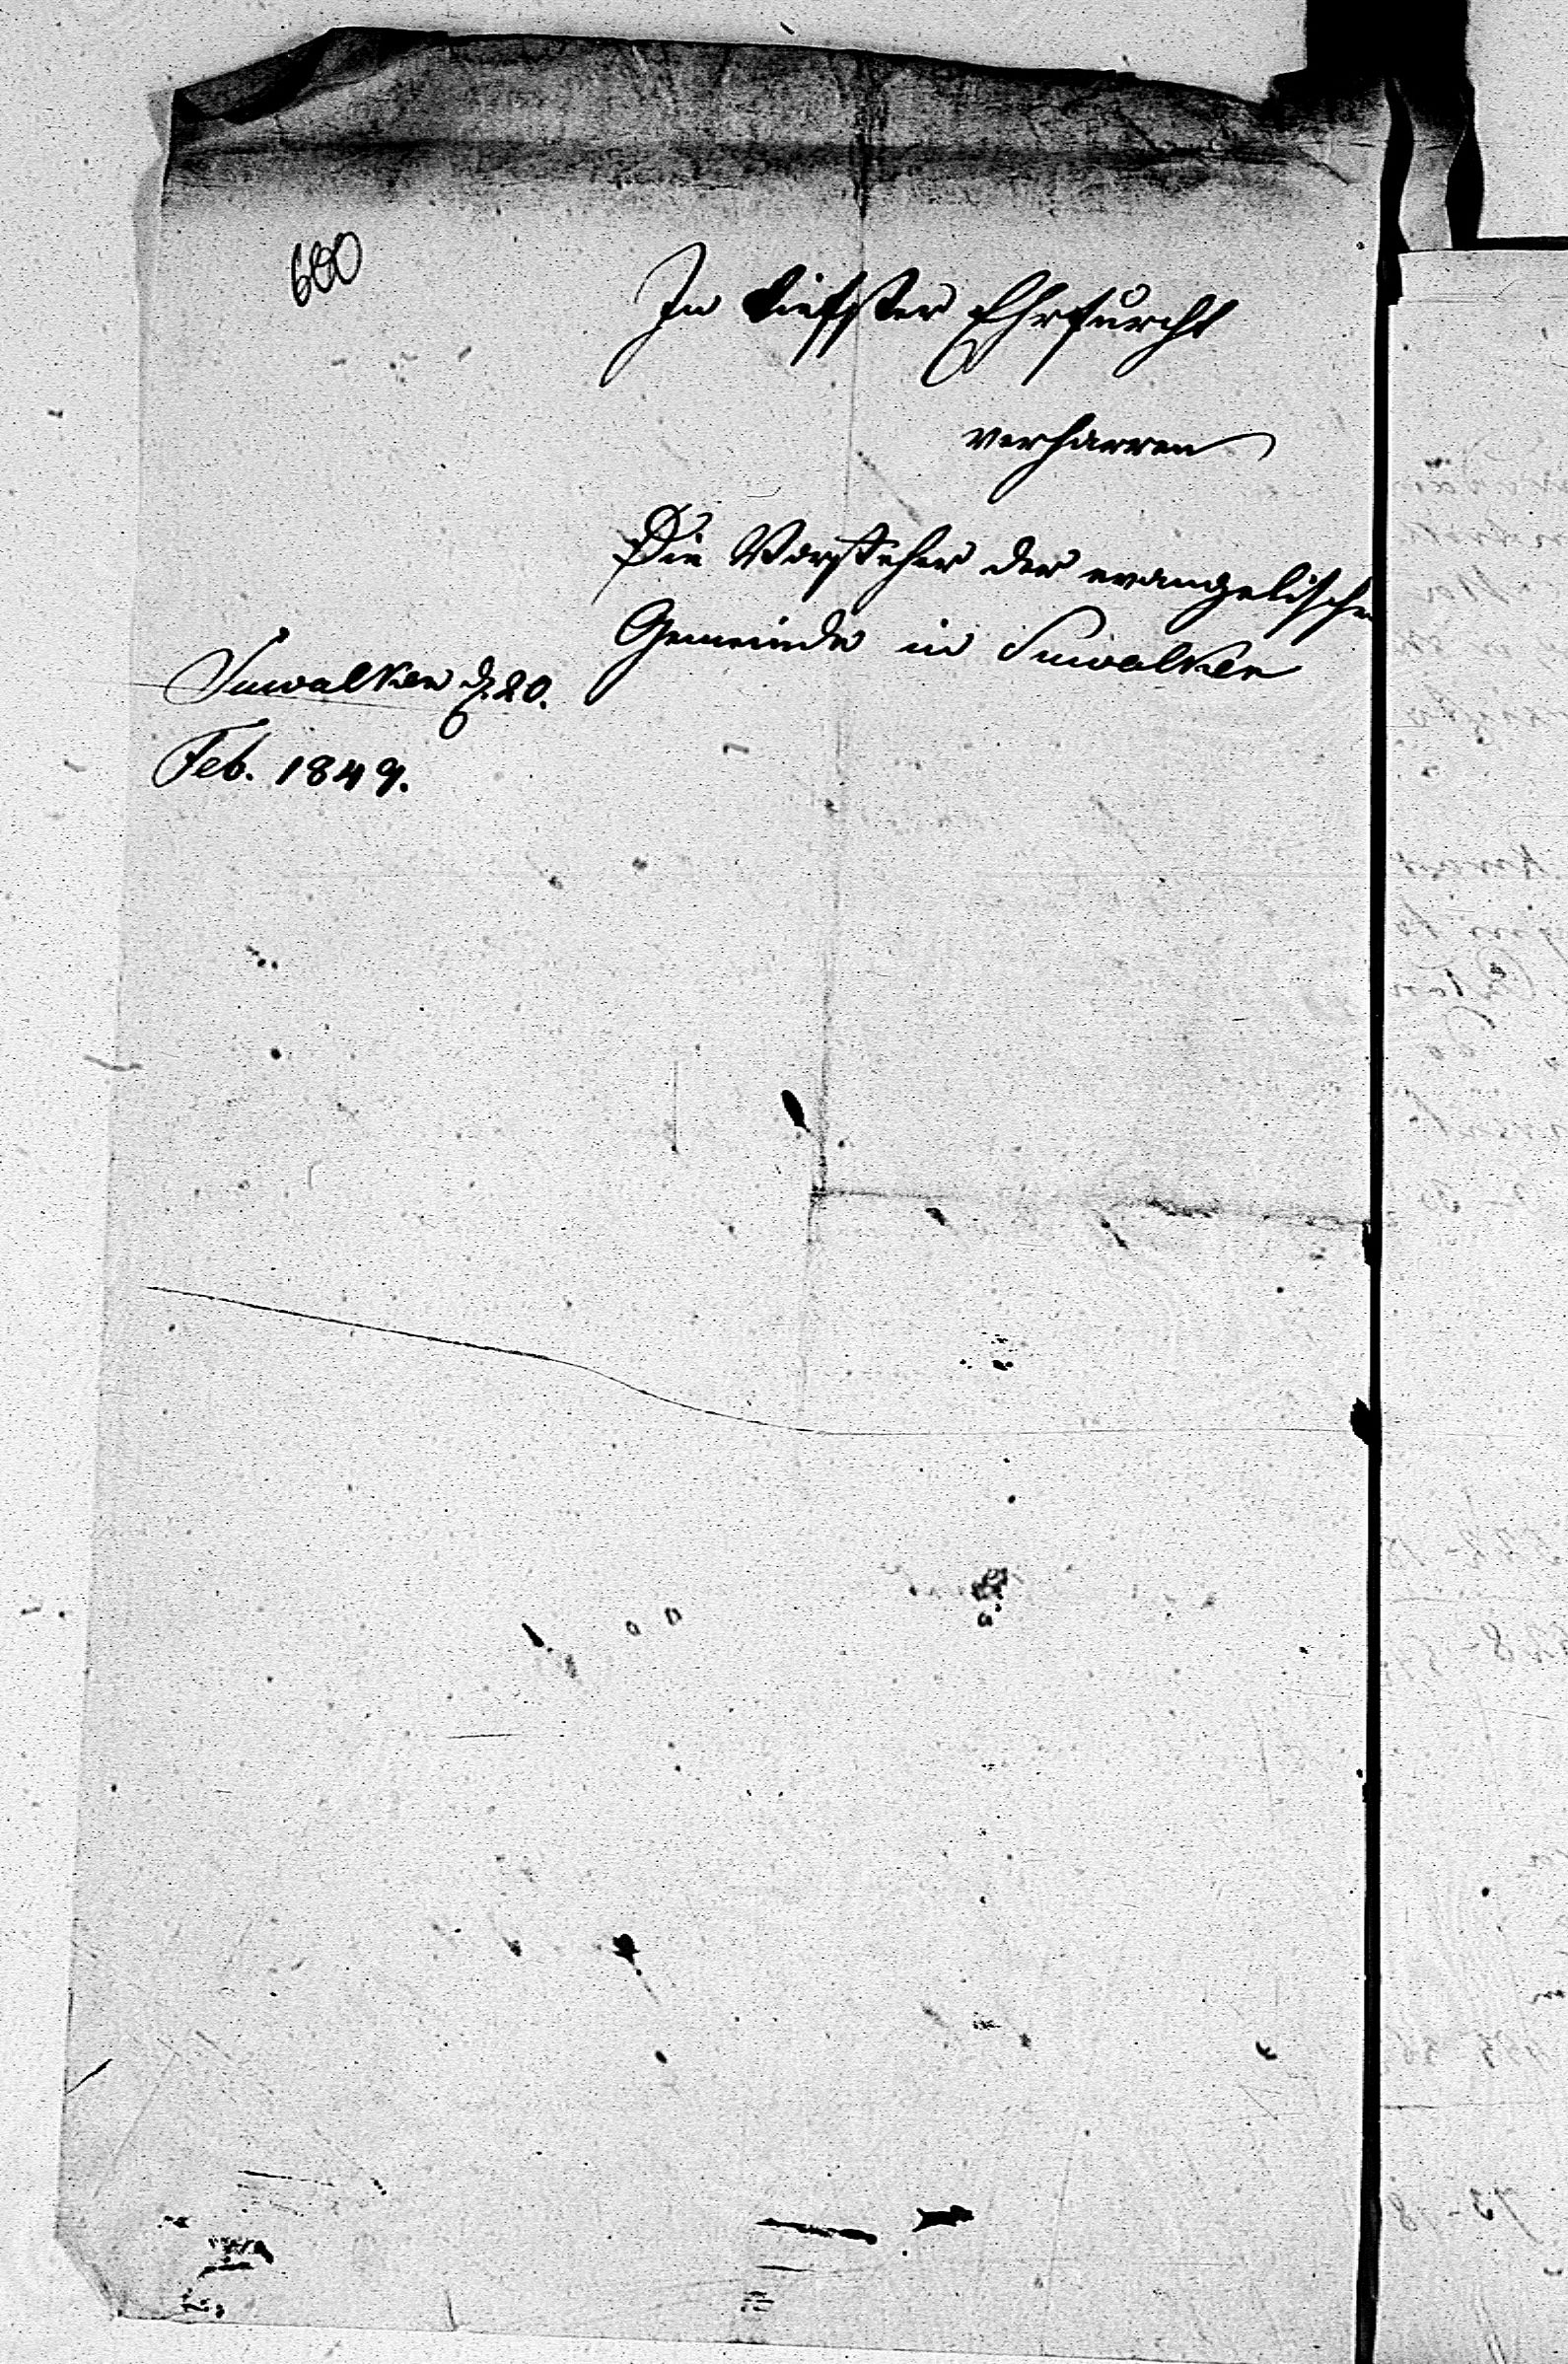 600
In tiefster Ehrfurcht
verharren
Die Vorsteher der evangelischen
Gemeinde in Suwalken
Suwalken d. 20.
Feb. 1849.